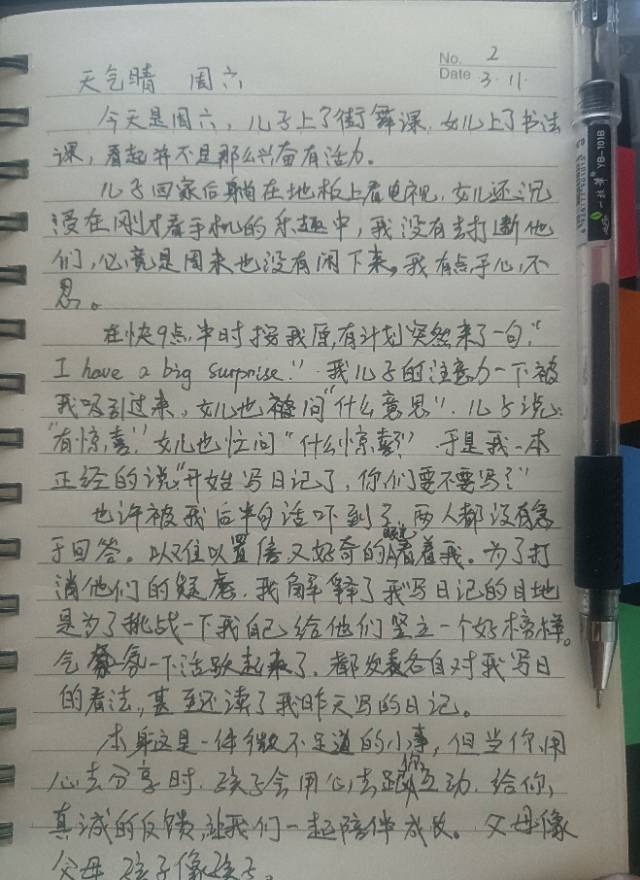 No. 2
Date 3.11.
天气晴 周六
今天是周六，儿子上了街舞课，女儿上了书法
课，看起并不是那么兴奋有活力。
儿子回家后躺在地板上看电视，女儿还沉
浸在刚才看手机的乐趣中，我没有去打断他
们，必竟是周末也没有闲下来。我有点于心不
忍。
在快9点半时按我原有计划突然来了一句，“
I have a big surprise!” 我儿子的注意力一下被
我吸引过来，女儿也问“什么意思”，儿子说：
“有惊喜！”女儿也忙问“什么惊喜？” 于是我一本
正经的说“开始写日记了，你们要不要写？”
也许被我后半句话吓到了，两人都没有急
于回答。以又好奇的看着我。为了打
消他们的疑虑，我解释了我写日记的目地
是为了挑战一下我自己给他们竖立一个好榜样。
气氛一下活跃起来了，都发表各自对我写日
的看法，甚至还读了我昨天写的日记。
本身这是一件微不足道的小事，但当你用
心去分享时，孩子会用心去跟你互动，给你
真诚的反馈，让我们一起陪伴成长。父母像
父母 孩子像孩子。
一枝笔 YB-101B